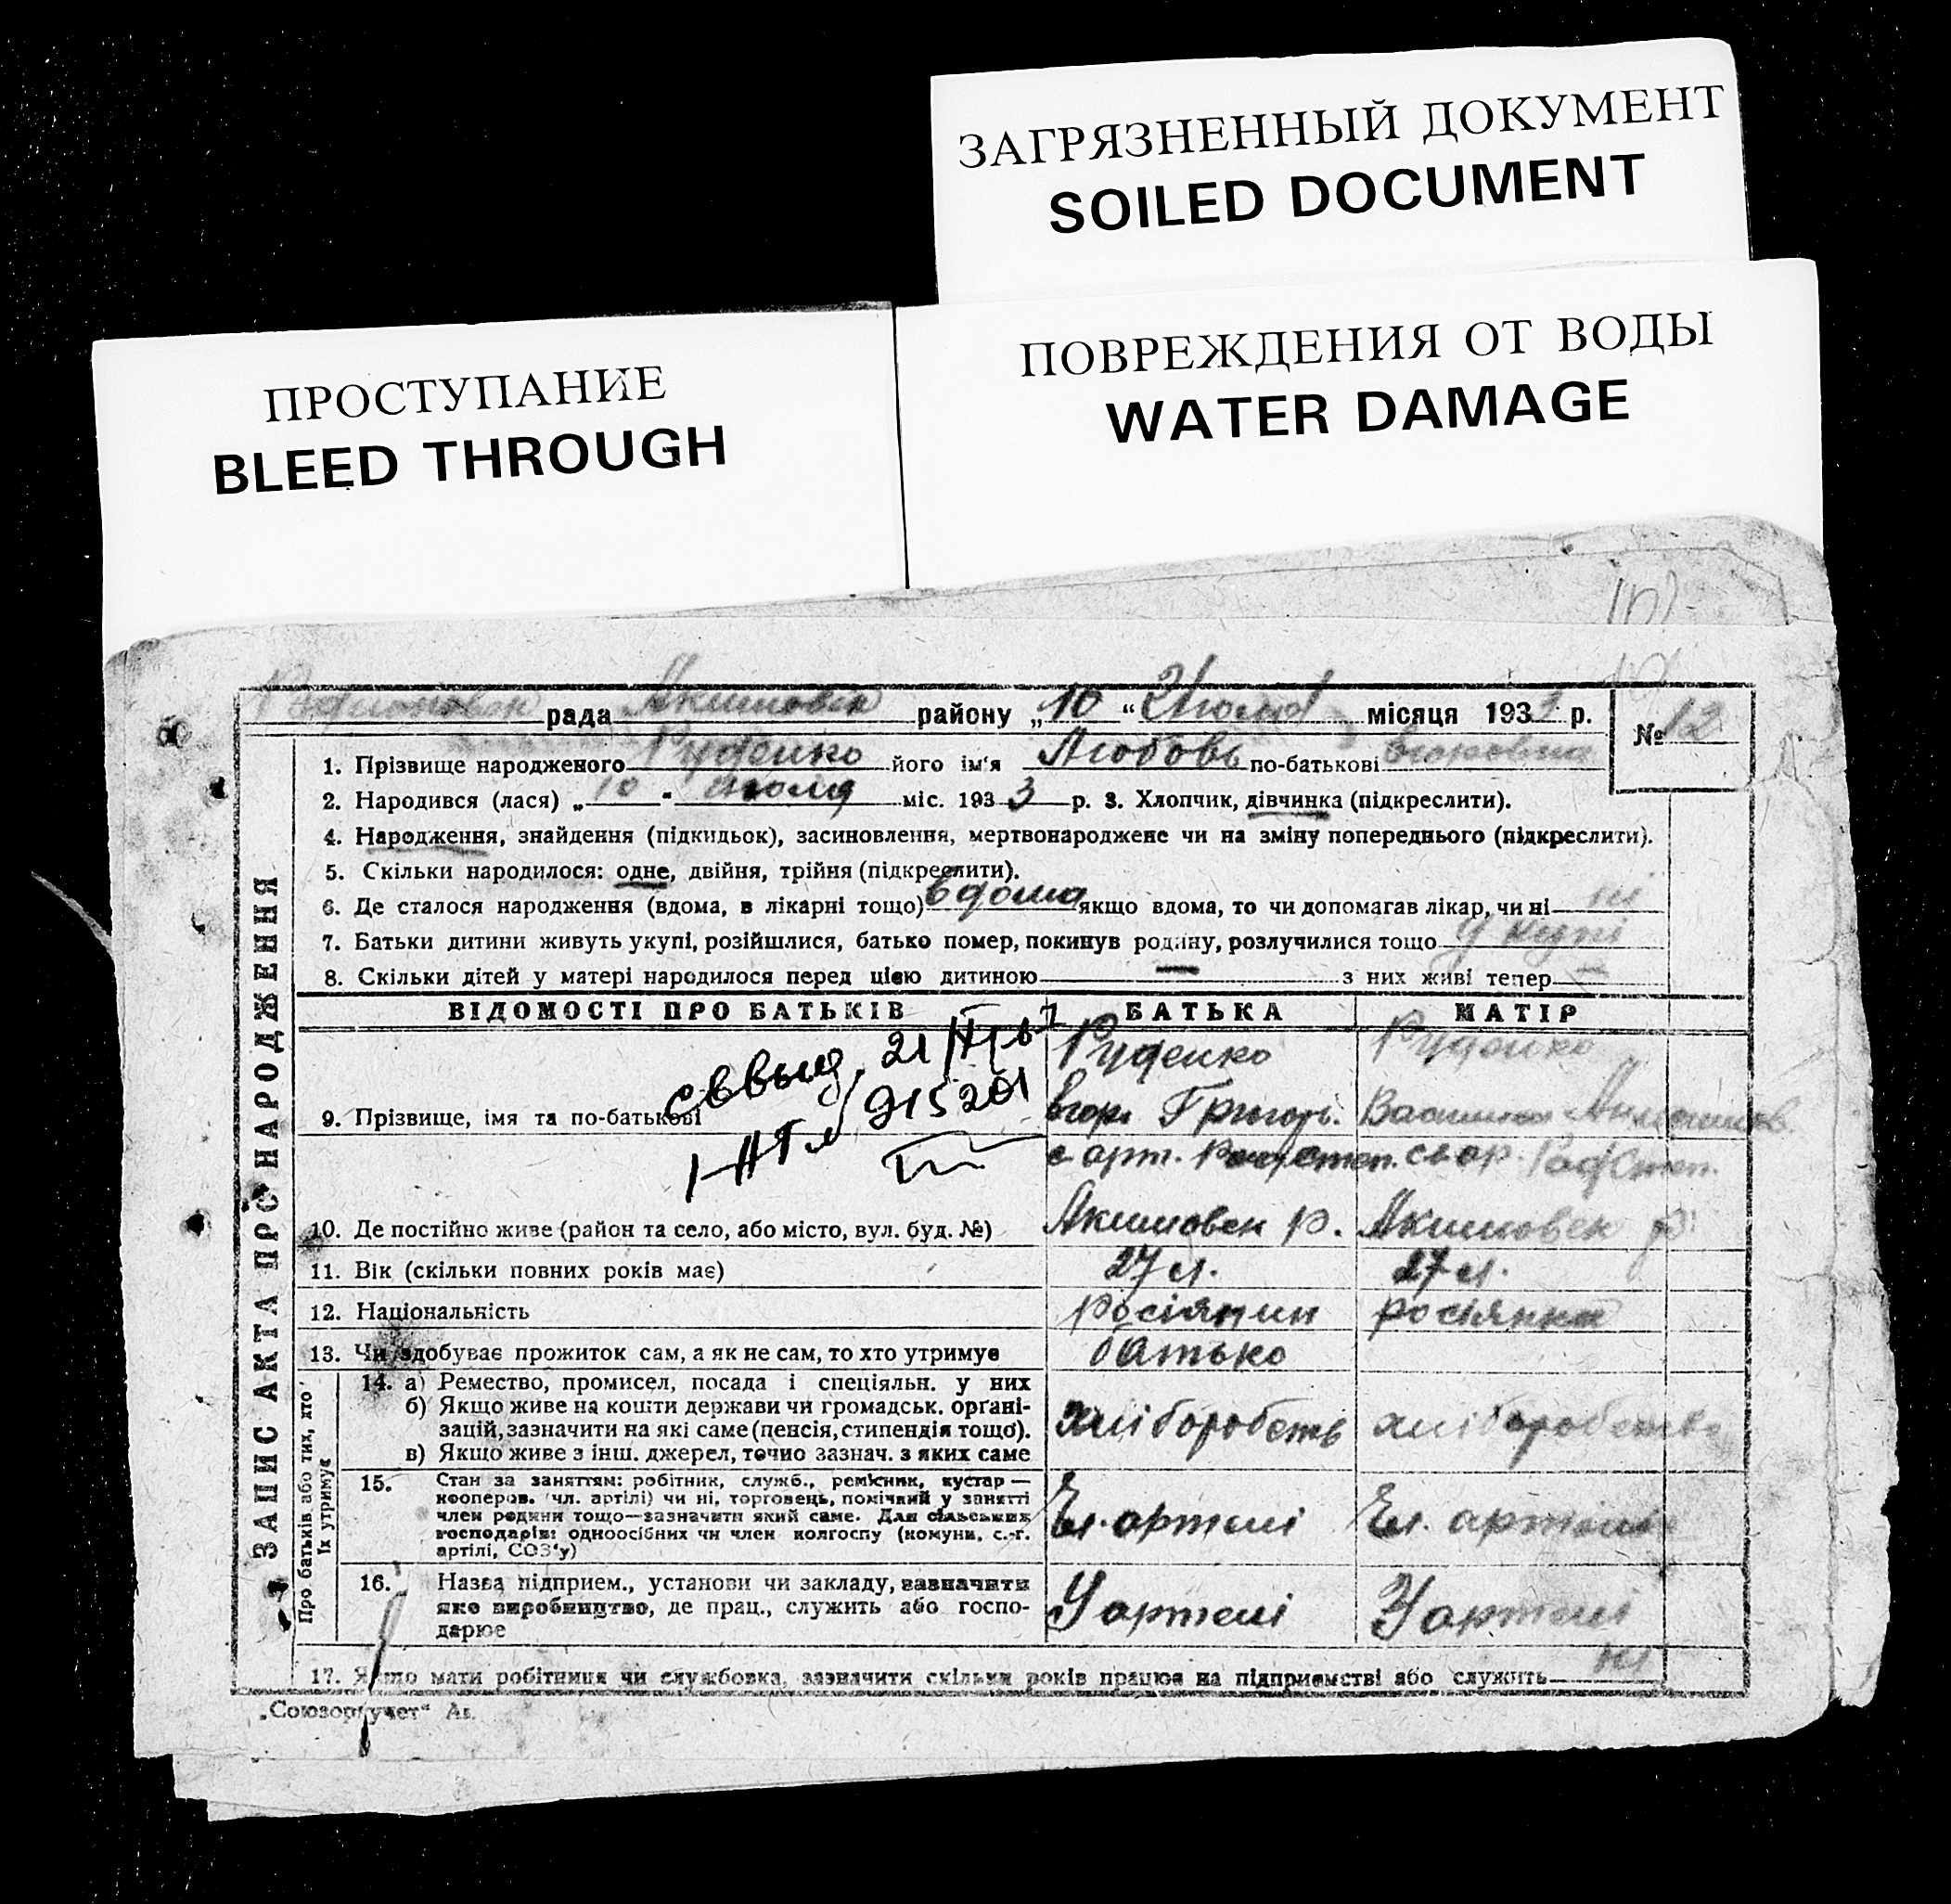 ЗАГРЯЗНЕННЫЙ ДОКУМЕНТ
SOILED DOCUMENT
ПРОСТУПАНИЕ
BLEED THROUGH
ПОВРЕЖДЕНИЯ ОТ ВОДЫ
WATER DAMAGE
рада Акимовск району „10“ місяця 1933 р.
№ 12
1. Прізвище народженого Руденко його ім'я Любовь по-батькові Егоровна
2. Народився (лася) „10" июля міс. 1933 р. 3. Хлопчик, дівчинка (підкреслити).
4. Народження, знайдення (підкидьок), засиновлення, мертвонароджене чи на зміну попереднього (підкреслити).
5. Скільки народилося: одне, двійня, трійня (підкреслити).
6. Де сталося народження (вдома, в лікарні тощо) вдома якщо вдома, то чи допомагав лікар, чи ні ні
7. Батьки дитини живуть укупі, розійшлися, батько помер, покинув родину, розлучилися тощо у купі
8. Скільки дітей у матері народилося перед цією дитиною — з них живі тепер —
ЗАПИС АКТА ПРО НАРОДЖЕННЯ
ВІДОМОСТІ ПРО БАТЬКІВ БАТЬКА МАТІР
Руденко Руденко
9. Прізвище, імя та по-батькові Егор Григорь.
915201
10. Де постійно живе (район та село, або місто, вул. буд. №) Акимовск р. Акимовск р
11. Вік (скільки повних років має) 27 л. 27 л.
12. Національність росіянин росіянка
13. Чи здобуває прожиток сам, а як не сам, то хто утримує батько
Про батьків або тих, хто їх утримує
14. а) Ремество, промисел, посада і спеціяльн. у них
б) Якщо живе на кошти держави чи громадськ. органі-
зацій, зазначити на які саме (пенсія, стипендія тощо). хліборобств хліборобство
в) Якщо живе з інш. джерел, точно зазнач. з яких саме
15. Стан за заняттям: робітник, служб., ремісник, кустар —
кооперов. (чл. артілі) чи ні, торговець, помічний у занятті
член родини тощо—зазначити який саме. Для сільських
господарів: одноосібних чи член колгоспу (комуни, с.-г.
артілі, СОЗ'у)
Чл. артелі Чл. артелі
16. Назва підприєм., установи чи закладу, зазначити
яке виробництво, де прац., служить або госпо-
дарює
У артелі У артелі
17. Якщо мати робітниця чи службовка, зазначити скільки років працює на підприємстві або служить ні
„Союзоргучет"